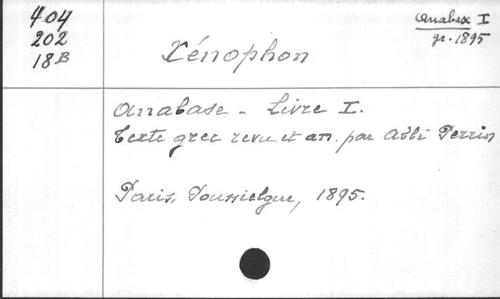 404
202
18B
Anabas I
gr. 1895
Xénophon
Anabase - Livre I.
Texte grec revu et an. par Abbé Perrin
Paris, Poussielgue, 1895.